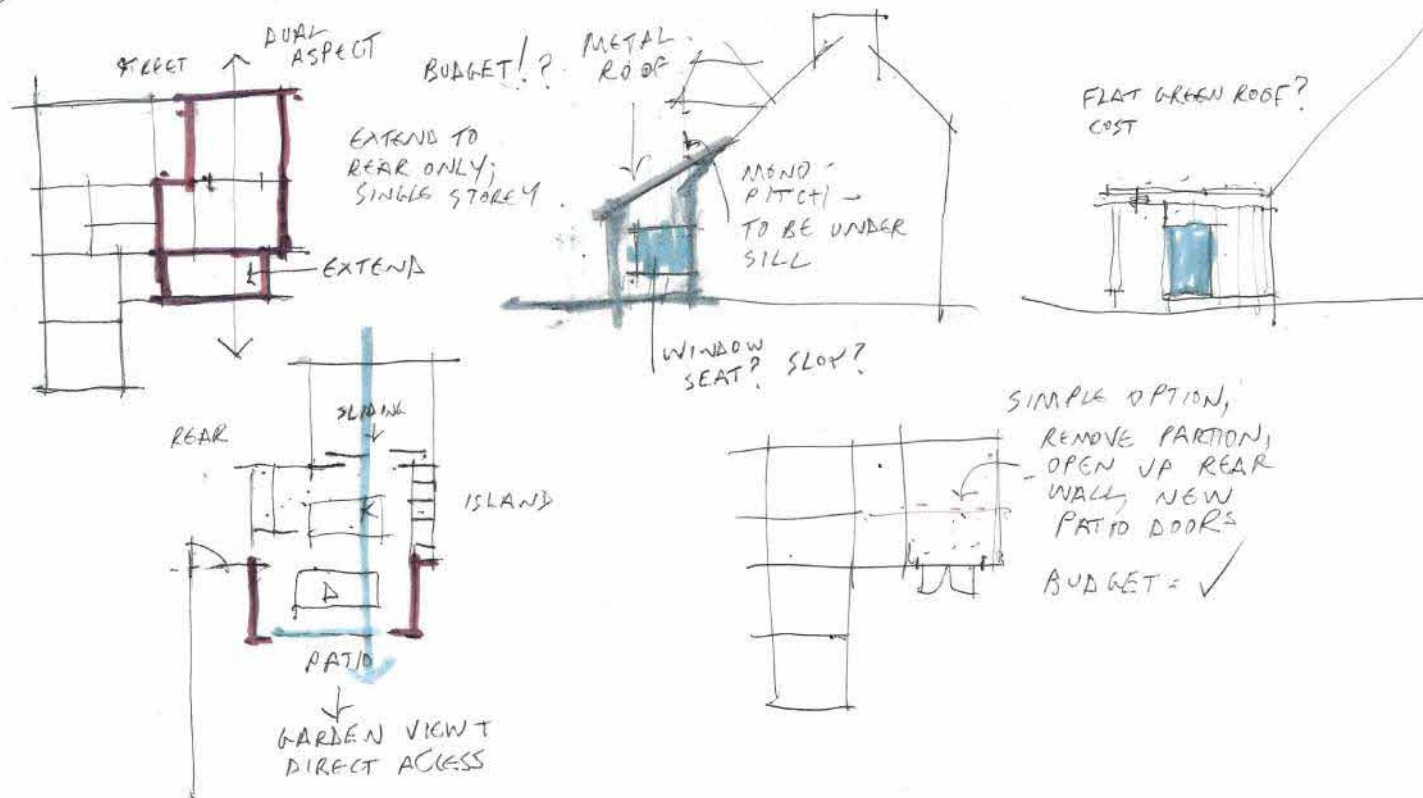 STREET
DUAL
ASPECT
EXTEND TO
REAR ONLY;
SINGLE STOREY
EXTEND
BUDGET!?
METAL
ROOF
MONO
PITCH -
TO BE UNDER
SILL
WINDOW
SEAT?
FLAT GREEN ROOF?
COST
REAR
SLIDING
K
ISLAND
D
PATIO
GARDEN VIEW +
DIRECT ACCESS
SIMPLE OPTION;
REMOVE PARTION,
OPEN UP REAR
WALL, NEW
PATIO DOORS
BUDGET = ✓